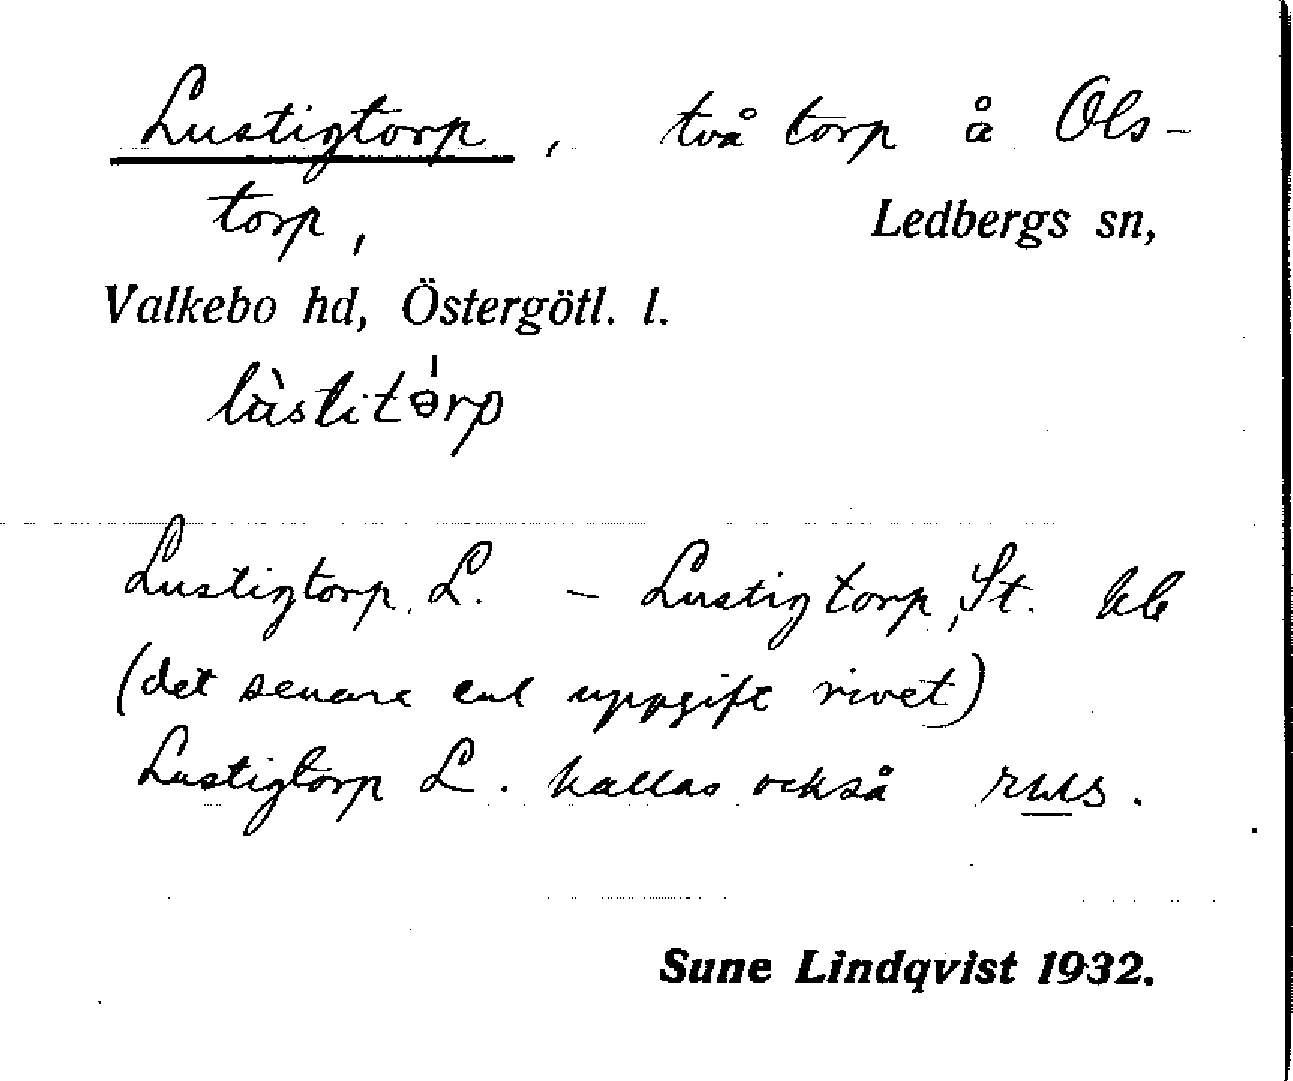 Lustigtorp, två torp å Ols-
torp, Ledbergs sn,
Valkebo hd, Östergötl. l.
Lustigtorp, L. – Lustigtorp, St. kb
(det senare enl uppgift rivet)
Lustigtorp L. kallas också
Sune Lindqvist 1932.